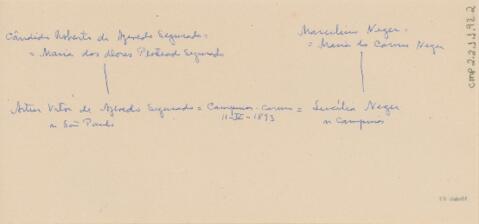 Cândido Roberto de Azevedo Segurado =
= Maria das Dores Segurado
Marcelino Neger =
= Maria do Carmo Neger
Artur Vitor de Azevedo Segurado = Campinas - = Lucília Neger
n São Paulo
1893
n Campinas
CMP 2.2.1.1.92.2